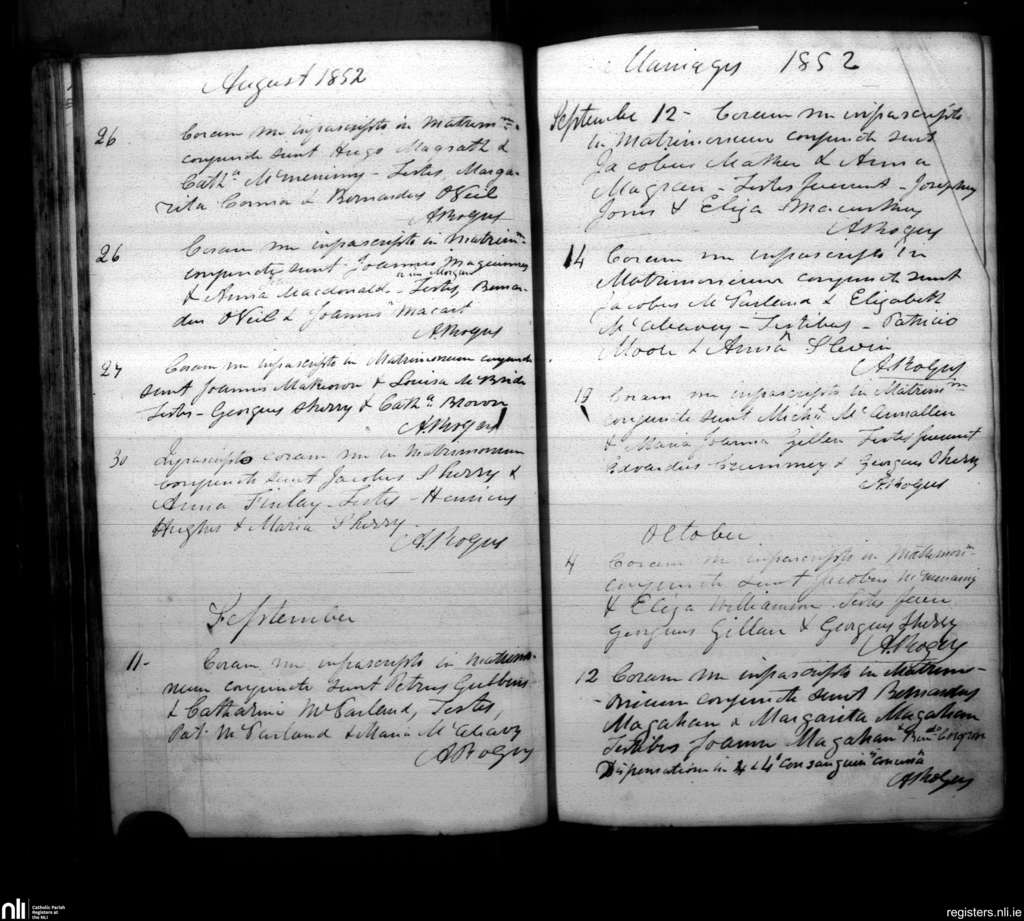 August 1852
26 Coram me infrascripto in Matrim
conjuncti sunt Hugo Magrath &
Cath.a McMenimy - Testes, Marga-
rita Conna & Bernardus O'Neil
A. Rogers
26 Coram me infrascripto in Matrim
conjuncti sunt Joannis Magennis
& Anna Macdonald - Testes, Bernar-
dus O'Neil & Joannis Macart
A. Rogers
27 Coram me infrascripto in Matrimonium conjuncti
sunt Joannis & Louisa McBride
Testes - Georgius Sherry & Cath.a Brown
A. Rogers
30 Infrascripto coram me in Matrimonium
conjuncti sunt Jacobus Sherry &
Anna Finlay - Testes - Henricus
Hughes & Maria Sherry
A. Rogers
September
11- Coram me infrascripto in matrimo-
nium conjuncti sunt Petrus Gribbins
& Catharine McParland, Testes,
Pat. McParland & Maria McAleavy
A. Rogers
Marriages 1852
September 12 - Coram me infrascripto
in Matrimonium conjuncti sunt
Jacobus & Anna
- Testes fuerunt - Josephus
Jones & Eliza
A. Rogers
14 Coram me infrascripto in
Matrimonium conjuncti sunt
Jacobus McParland & Elizabeth
McAleavey - Testibus - Patricio
Moore & Anna Slevin
A. Rogers
19 Coram me infrascripto in Matrim
conjuncti sunt Mich.l McAnnallen
& Maria Joanna Gillen Testes fuerunt
Edvardus Crummey & Georgius Sherry
A. Rogers
October
4 Coram me infrascripto in Matrimon
conjuncti sunt Jacobus McMenamy
& Eliza Williamson. Testes fuer
Georgius Gillan & Georgius Sherry
A. Rogers
12 Coram me infrascripto in Matrimo-
-nium conjuncti sunt Bernardus
Magahan & Margarita Magahan
Testibus Joanne Magahan
Dispensatione in 4 & 4 consanguin
A. Rogers
nli
Catholic Parish
Registers at
the NLI
registers.nli.ie